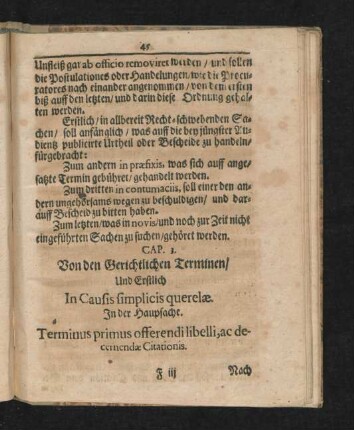 45.
Unfleiß gar ab officio removiret werden / und sollen
die Postulationes oder Handelungen, wie die Procu-
ratores nach einander angenommen / von dem ersten
biß auff den letzten / und darin diese Ordnung gehal-
ten werden.
Erstlich / in allbereit Recht-schwebenden Sa-
chen / soll anfänglich / was auff die bey jüngster Au-
dientz publicirte Urtheil oder Bescheide zu handeln /
fürgebracht:
Zum andern in præfixis, was sich auff ange-
satzte Termin gebühret / gehandelt werden.
Zum dritten in contumaciis, soll einer den an-
dern ungehorsams wegen zu beschuldigen / und dar-
auff Bescheid zu bitten haben.
Zum letzten / was in novis / und noch zur Zeit nicht
eingeführten Sachen zu suchen / gehöret werden.
CAP. 1.
Von den Gerichtlichen Terminen /
Und Erstlich
In Causis simplicis querelæ.
In der Haupsache.
Terminus primus offerendi libelli, ac de-
cernendæ Citationis.
F iij Nach